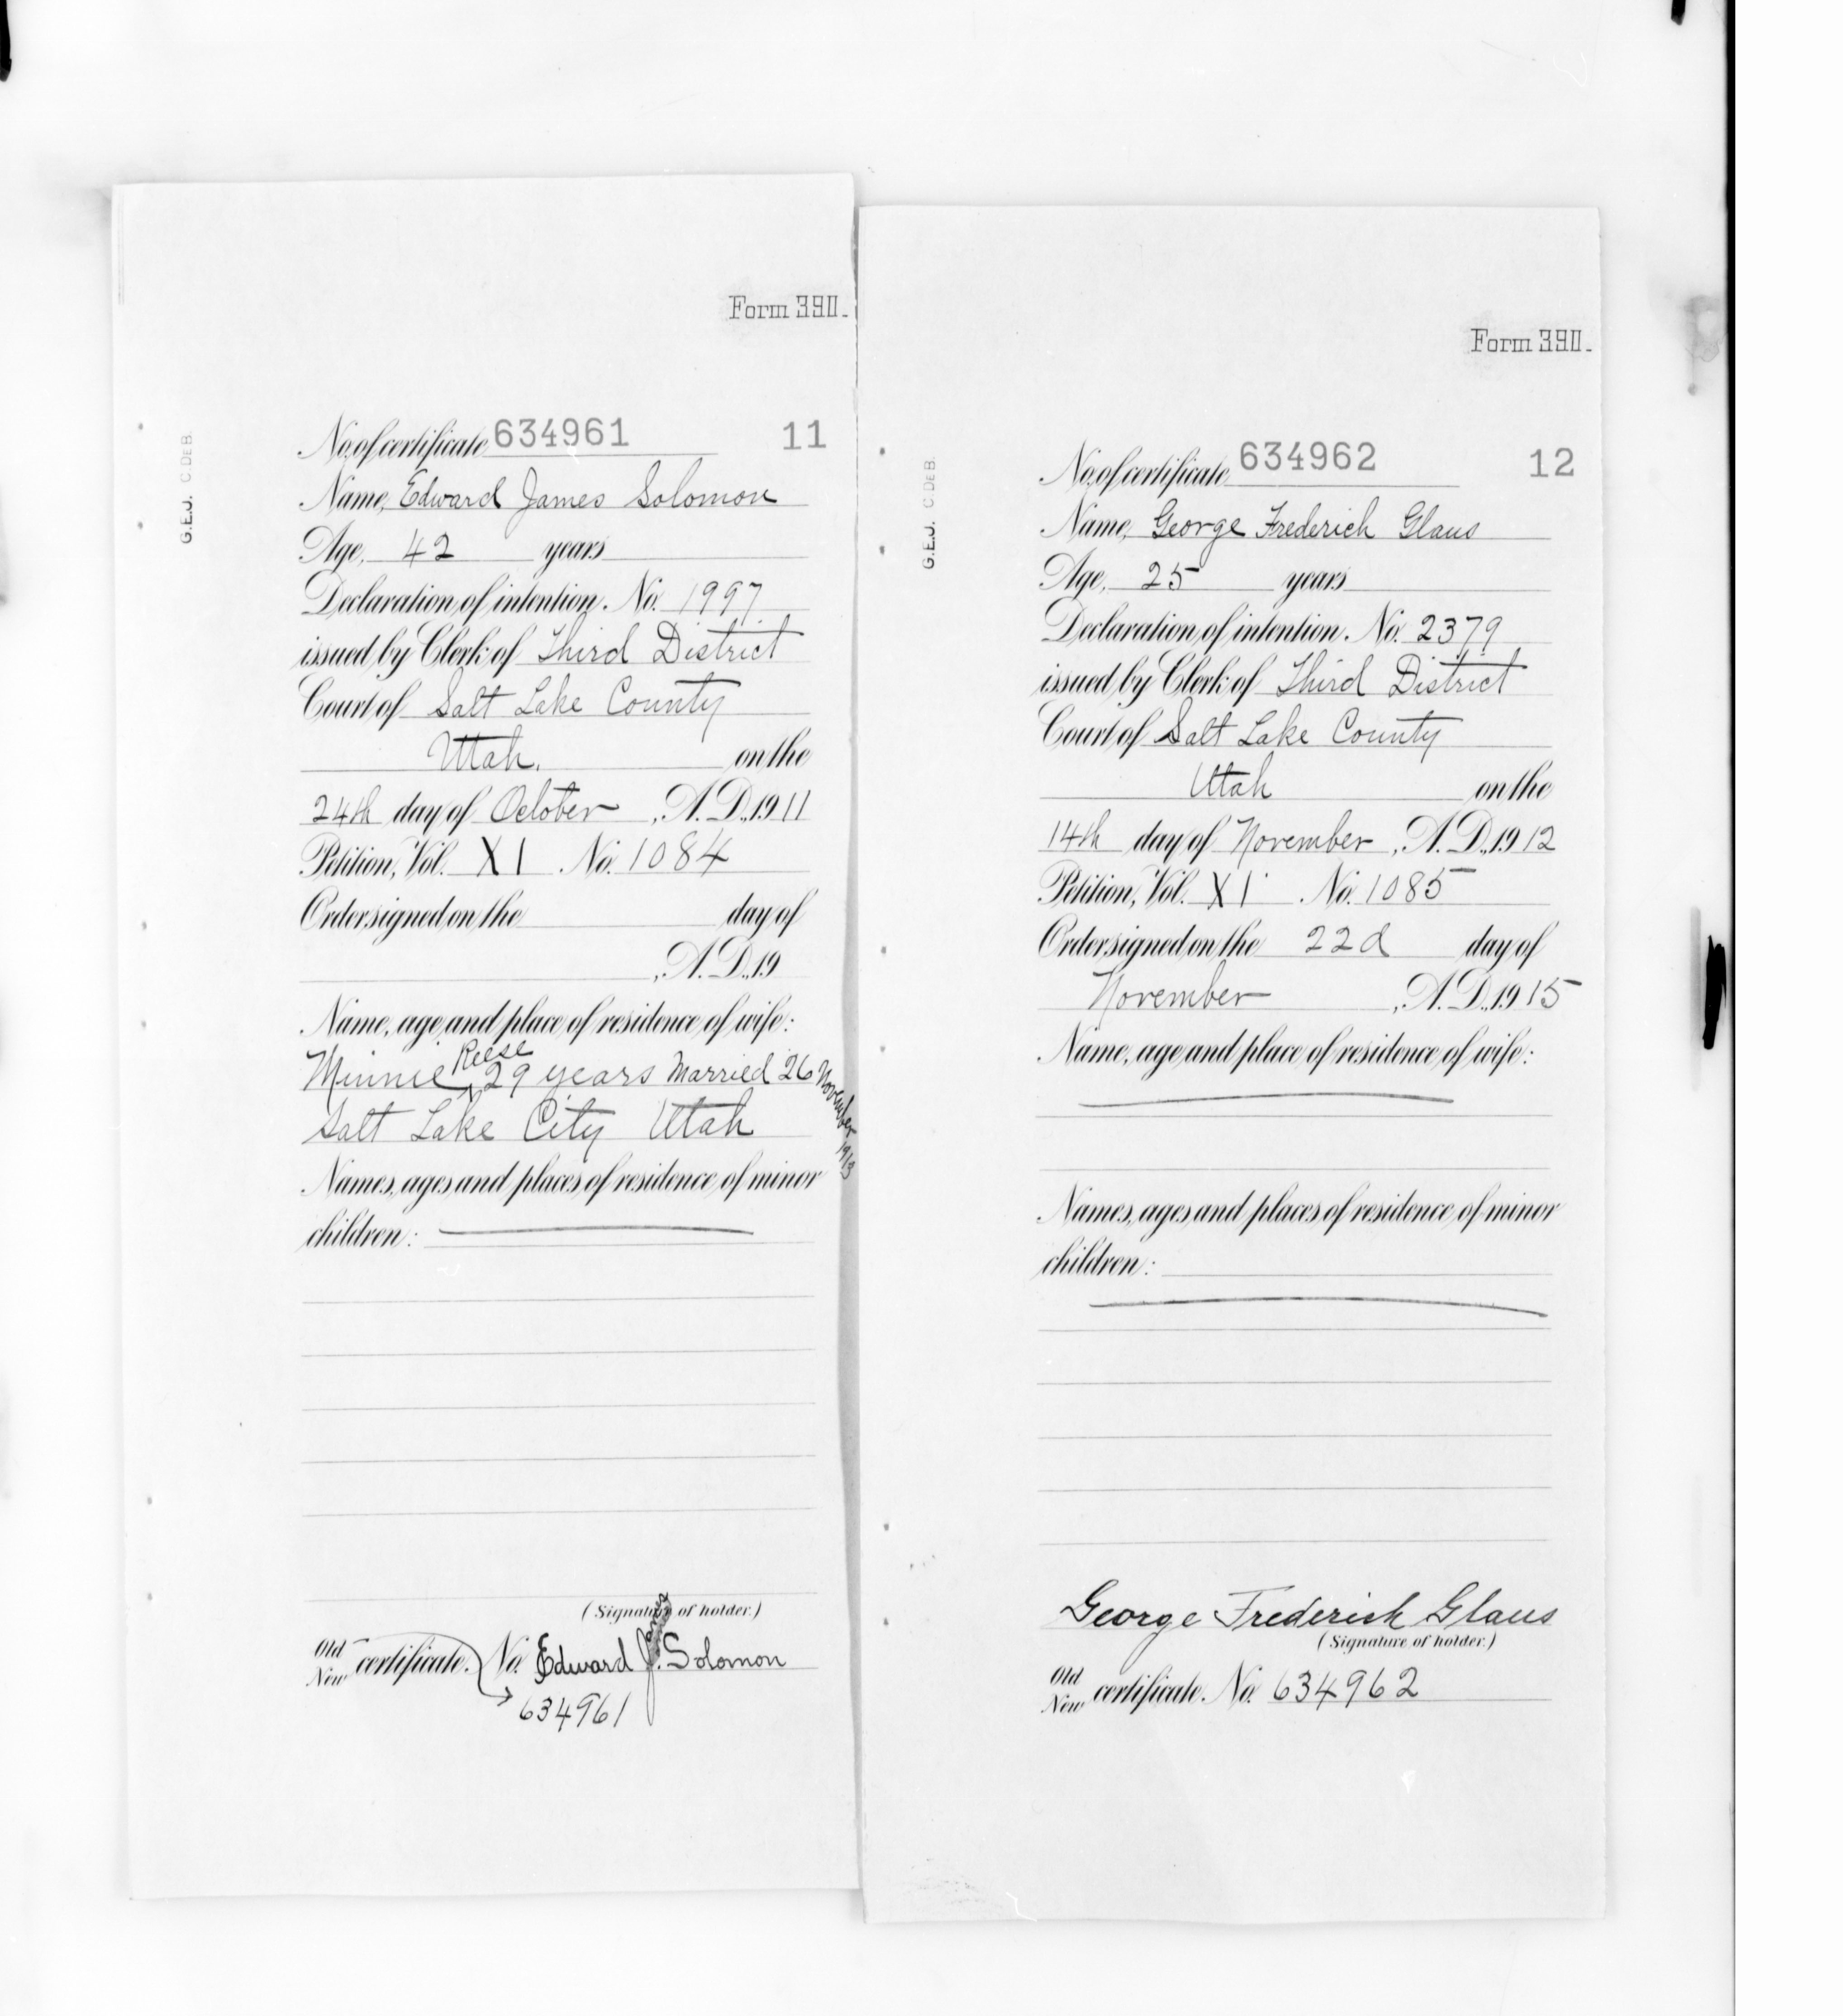 Form 390.
No. of certificate 634961 11
Name, Edward James Solomon
Age, 42 years
Declaration of intention. No. 1997
issued by Clerk of Third District
Court of Salt Lake County
Utah. on the
24th day of October, A. D., 1911
Petition, Vol. XI No. 1084
Order signed on the day of
, A. D., 19
Name, age and place of residence of wife:
Minnie Reese 29 years Married 26 November 1913
Salt Lake City Utah
Names, ages and places of residence of minor
children:
(Signature of holder.)
Old New certificate. No. Edward J. Solomon
634961
G.E.J. C. DE B.
Form 390.
No. of certificate 634962 12
Name, George Frederich Glaus
Age, 25 years
Declaration of intention. No. 2379
issued by Clerk of Third District
Court of Salt Lake County
Utah on the
14th day of November, A. D., 1912
Petition, Vol. XI. No. 1085
Order signed on the 22d day of
November, A. D., 1915
Name, age and place of residence of wife:
Names, ages and places of residence of minor
children:
George Frederick Glaus
(Signature of holder.)
Old New certificate. No. 634962
G.E.J. C. DE B.